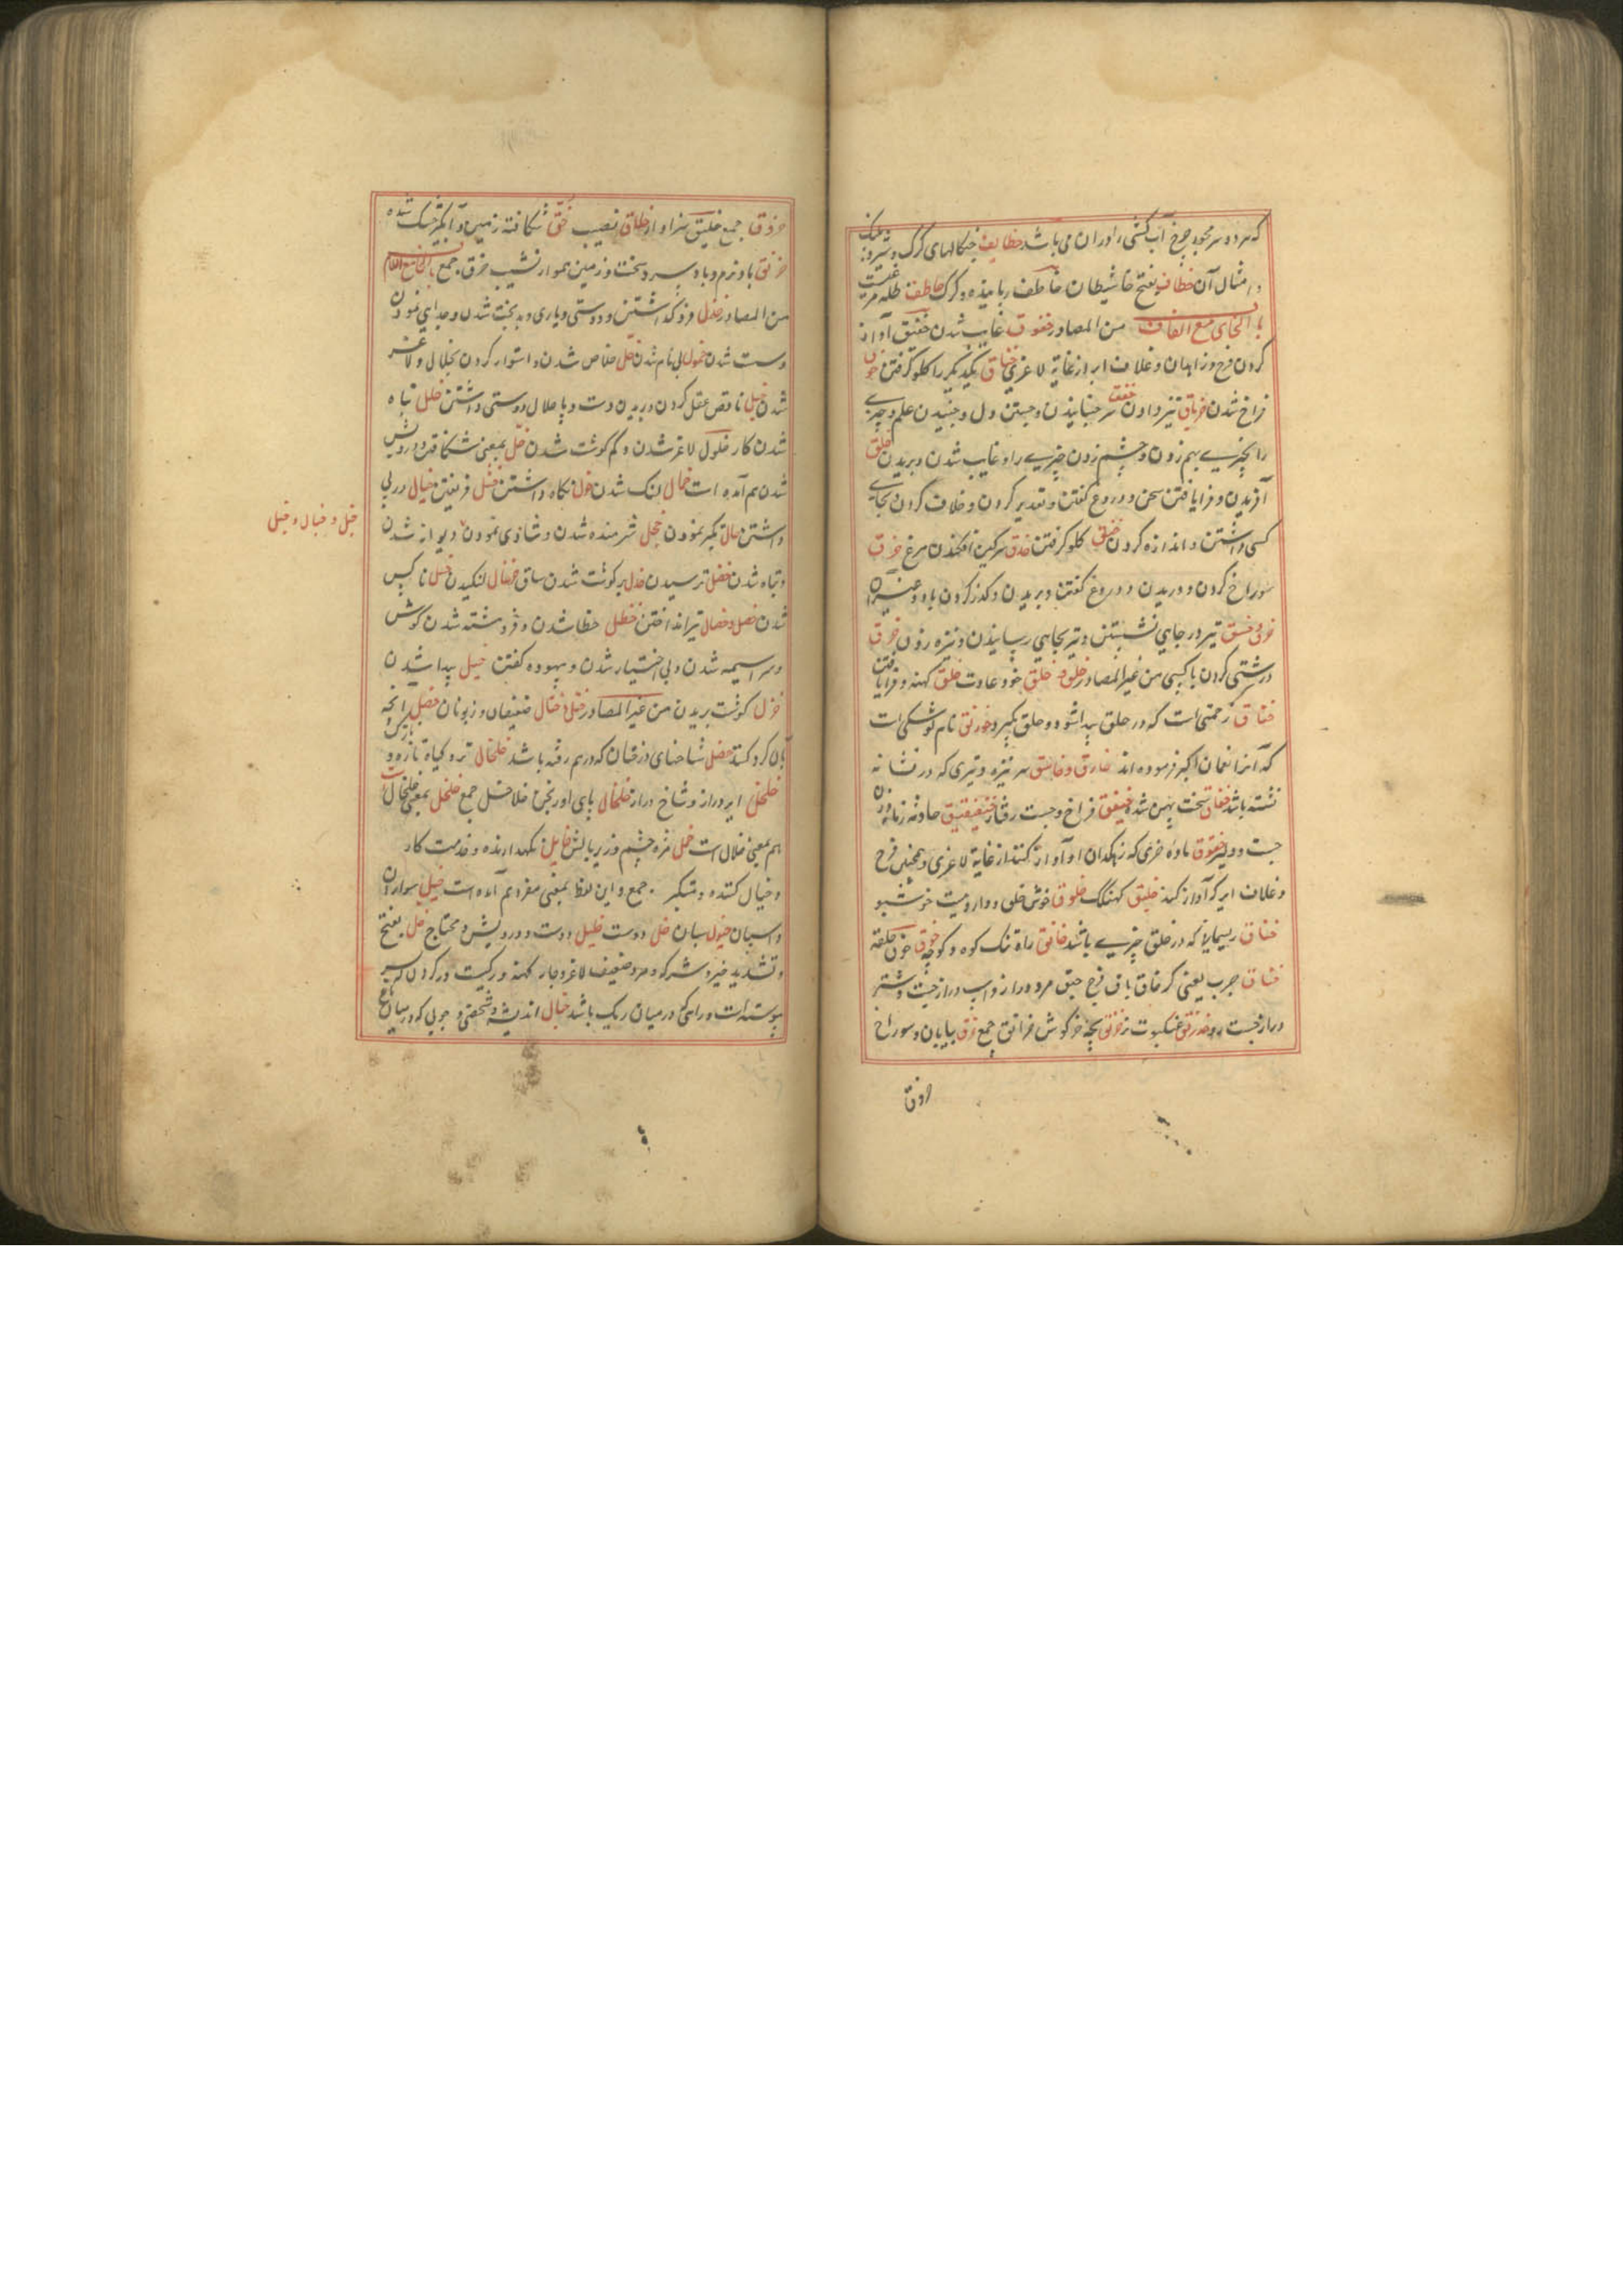 که هر دو سر محور چرخ آب کشی را در ان می باشد خطاطیف چنکالهای کرک و شیر و پلنک
و امثال آن خطاف بفتح خا شیطان خاطف رباینده و کرک خاطف ظله مرغیست
باب الخای مع القاف من المصادر خفوق غایب شدن خقیق آواز
کردن فرج و زاهدان و غلاف ایر از غایة لاغری خناق یکدیکر را کلو کرفتن
فراخ شدن خرباق تیز دادن خفق سر جنبانیدن و جستن دل و جنبیدن علم و چیزی
را بچیزی بهم زدن و چشم زدن چیزی را و غایب شدن و بریدن خلق
آفریدن و فرا یافتن سخن و دروغ کفتن و تقدیر کردن و خلاف کردن و بجای
کسی داشتن و اندازه کردن خنق کلو کرفتن خذق سرکین افکندن مرغ خرق
سوراخ کردن و دریدن و دروغ کفتن و بریدن و کذر کردن باد و غیر آن
خزق و خسق تیر در جایی نشستن و تیر بجایی رسانیدن و نیزه زدن خرق
درشتی کردن با کسی من غیر المصادر خلق و خلق خو و عادت خلق کهنه و فرا یافتن
خناق زحمتی است که در حلق پیدا شود و حلق بکیرد خورنق نام کوشکی است
که آنرا نعمان اکبر فرموده اند خارق و خاسق سر نیزه و تیری که در نشانه
نشسته باشد خفاق سخت پهن شده خیفق فراخ و جست رفتار خنفقیق حادثه زمانه و زن
جست و دلیر خقوق ماده خری که زهکدان او آواز کند از غایة لاغری و همچنین فرج
و غلاف ایر که آواز کند خلیق کهنکک خلوق خوش خلق و دارویست خوشبو
خناق ریسمانی که در حلق چیزی باشد خانق راه تنک کوه و کوچه خوق حلقه
خناق جرب یعنی کر خاق باق فرج خبق مرد دراز و اسپ دراز جست و شتر
دراز جست رو خدرنق عنکبوت نر خرنق بچه خرکوش خرانق جمع خرق بیابان و سوراخ
خروق
خروق جمع خلیق سزاوار خلاق نصیب خق شکافته زمین و آبکیر خشک شده
خریق باد نرم و باد سرد و سخت و زمین هموار نشیب خرق جمع باب الخای مع اللام
من المصادر خذل فرو کذاشتن و دوستی و یاری و بدبخت شدن و جدایی نمودن
و سست شدن خمول بی نام شدن خل خلاص شدن و استوار کردن بخلال و لاغر
شدن خبل ناقص عقل کردن و بریدن دست و پا خلال دوستی داشتن خلل تباه
شدن کار خلول لاغر شدن و کم کوشت شدن خل بمعنی شکافتن و درویش
شدن هم آمده است خمال لنک شدن خول نکاه داشتن ختل فریفتن خیال در پی
داشتن خال تکبر نمودن خجل شرمنده شدن و شادی نمودن و دیوانه شدن
و تباه شدن خضل ترسیدن خدل پر کوشت شدن ساق خزعال لنکیدن خسل ناکس
شدن خصل و خصال تیر انداختن خطل خطا شدن و فروهشته شدن کوش
و سراسیمه شدن و بی اختیار شدن و بیهوده کفتن خیل پیدا شدن
خزل کوشت بریدن من غیر المصادر ختل و ختال ضعیفان و زبونان خصل آنچه
بآن کرو کنند خضل شاخهای درختان که درهم رفته باشد خلخال تر و کیاه تازه و
خلخل ایر دراز و شاخ دراز خلخال پای اورنجن خلاخل جمع خلخل بمعنی خلخال
هم بمعنی خلال است خمل مژه چشم و زیر بالش خایل نکهدارنده و خدمت کار
و خیال کننده و متکبر جمع و این لفظ بمعنی مفرد هم آمده است خیل سواران
و اسپان خیول اسبان خل دوست خلیل دوست و درویش و محتاج خل بفتح
و تشدید خیر و شر کو و مرد ضعیف لاغر و جامه کهنه و رکیست در کردن که بسر
پیوسته است و راهی که در میان ریک باشد خیال اندیشه و شخصی و چوبی که در میان باغ
خبل و خبال و خبل